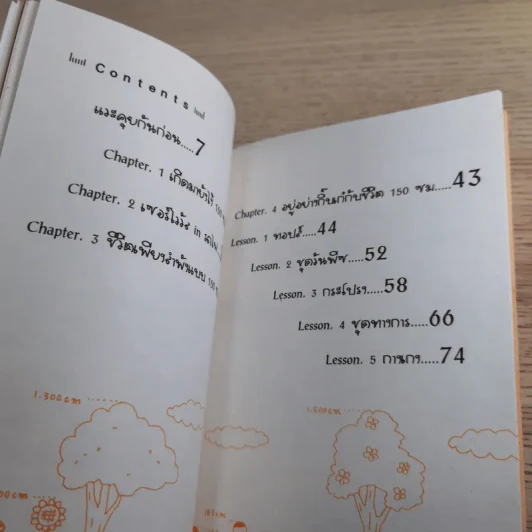 Contents
แวะคุยกันก่อน.....7
Chapter. 1 เกิดมาขาไว้ 150
Chapter. 2 เซอร์ไวว์ส in
Chapter. 3 ชีวิตเพียงลำพันแบบ 150
Chapter. 4 อยู่อย่างกิ๊บเก๋กับชีวิต 150 ซม.....43
Lesson. 1 ทอปส์.....44
Lesson. 2 ชุดวันพีซ.....52
Lesson. 3 กระโปรง.....58
Lesson. 4 ชุดทางการ.....66
Lesson. 5 กางเกง.....74
1.300cm
1.500cm